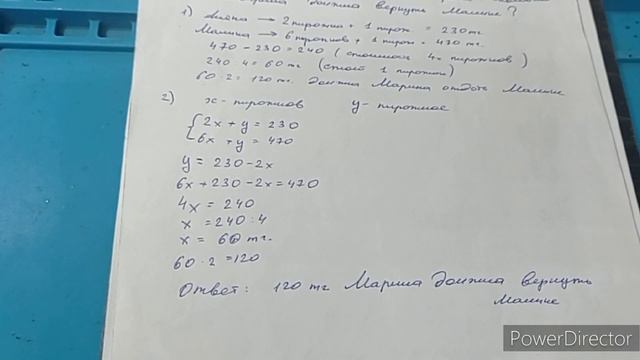 должна вернуть Малине?
1) → 2 пирожка + 1 пирож. = 230 тг
Малина → 6 пирожков + 1 пирож = 470 тг.
470 - 230 = 240 ( 4х пирожков )
240 : 4 = 60 тг (стоит 1 пирожок)
60 · 2 = 120 тг. должна Марина отдать Малине
2) x - пирожков y - пирожное
{ 2x + y = 230
6x + y = 470
y = 230 - 2x
6x + 230 - 2x = 470
4x = 240
x = 240 : 4
x = 60 тг.
60 · 2 = 120
Ответ: 120 тг Марина должна вернуть
Малине
PowerDirector